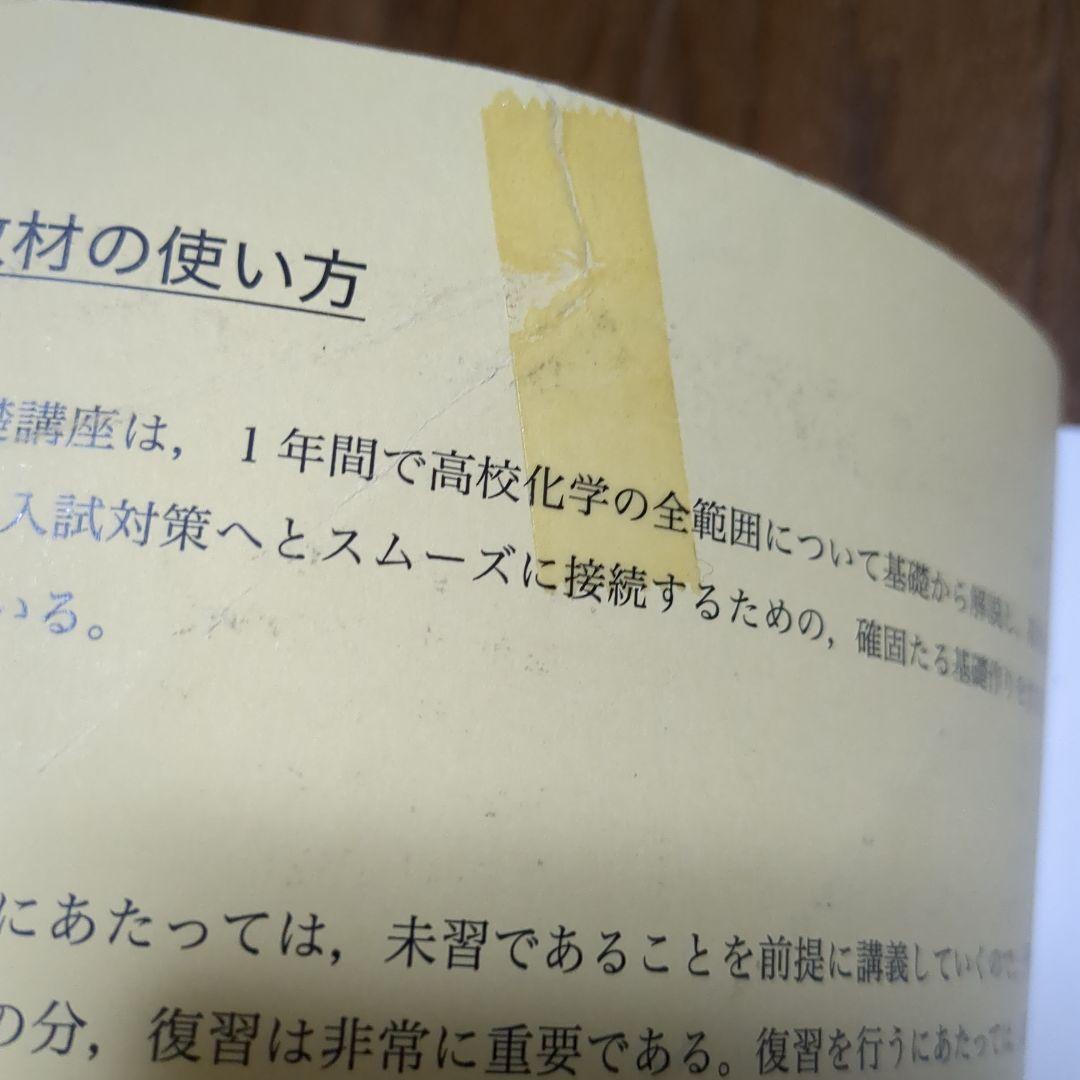 教材の使い方
礎講座は，1年間で高校化学の全範囲について基礎から解説し，
入試対策へとスムーズに接続するための，確固たる基礎作りを
いる。
にあたっては，未習であることを前提に講義していくので
の分，復習は非常に重要である。復習を行うにあたっては